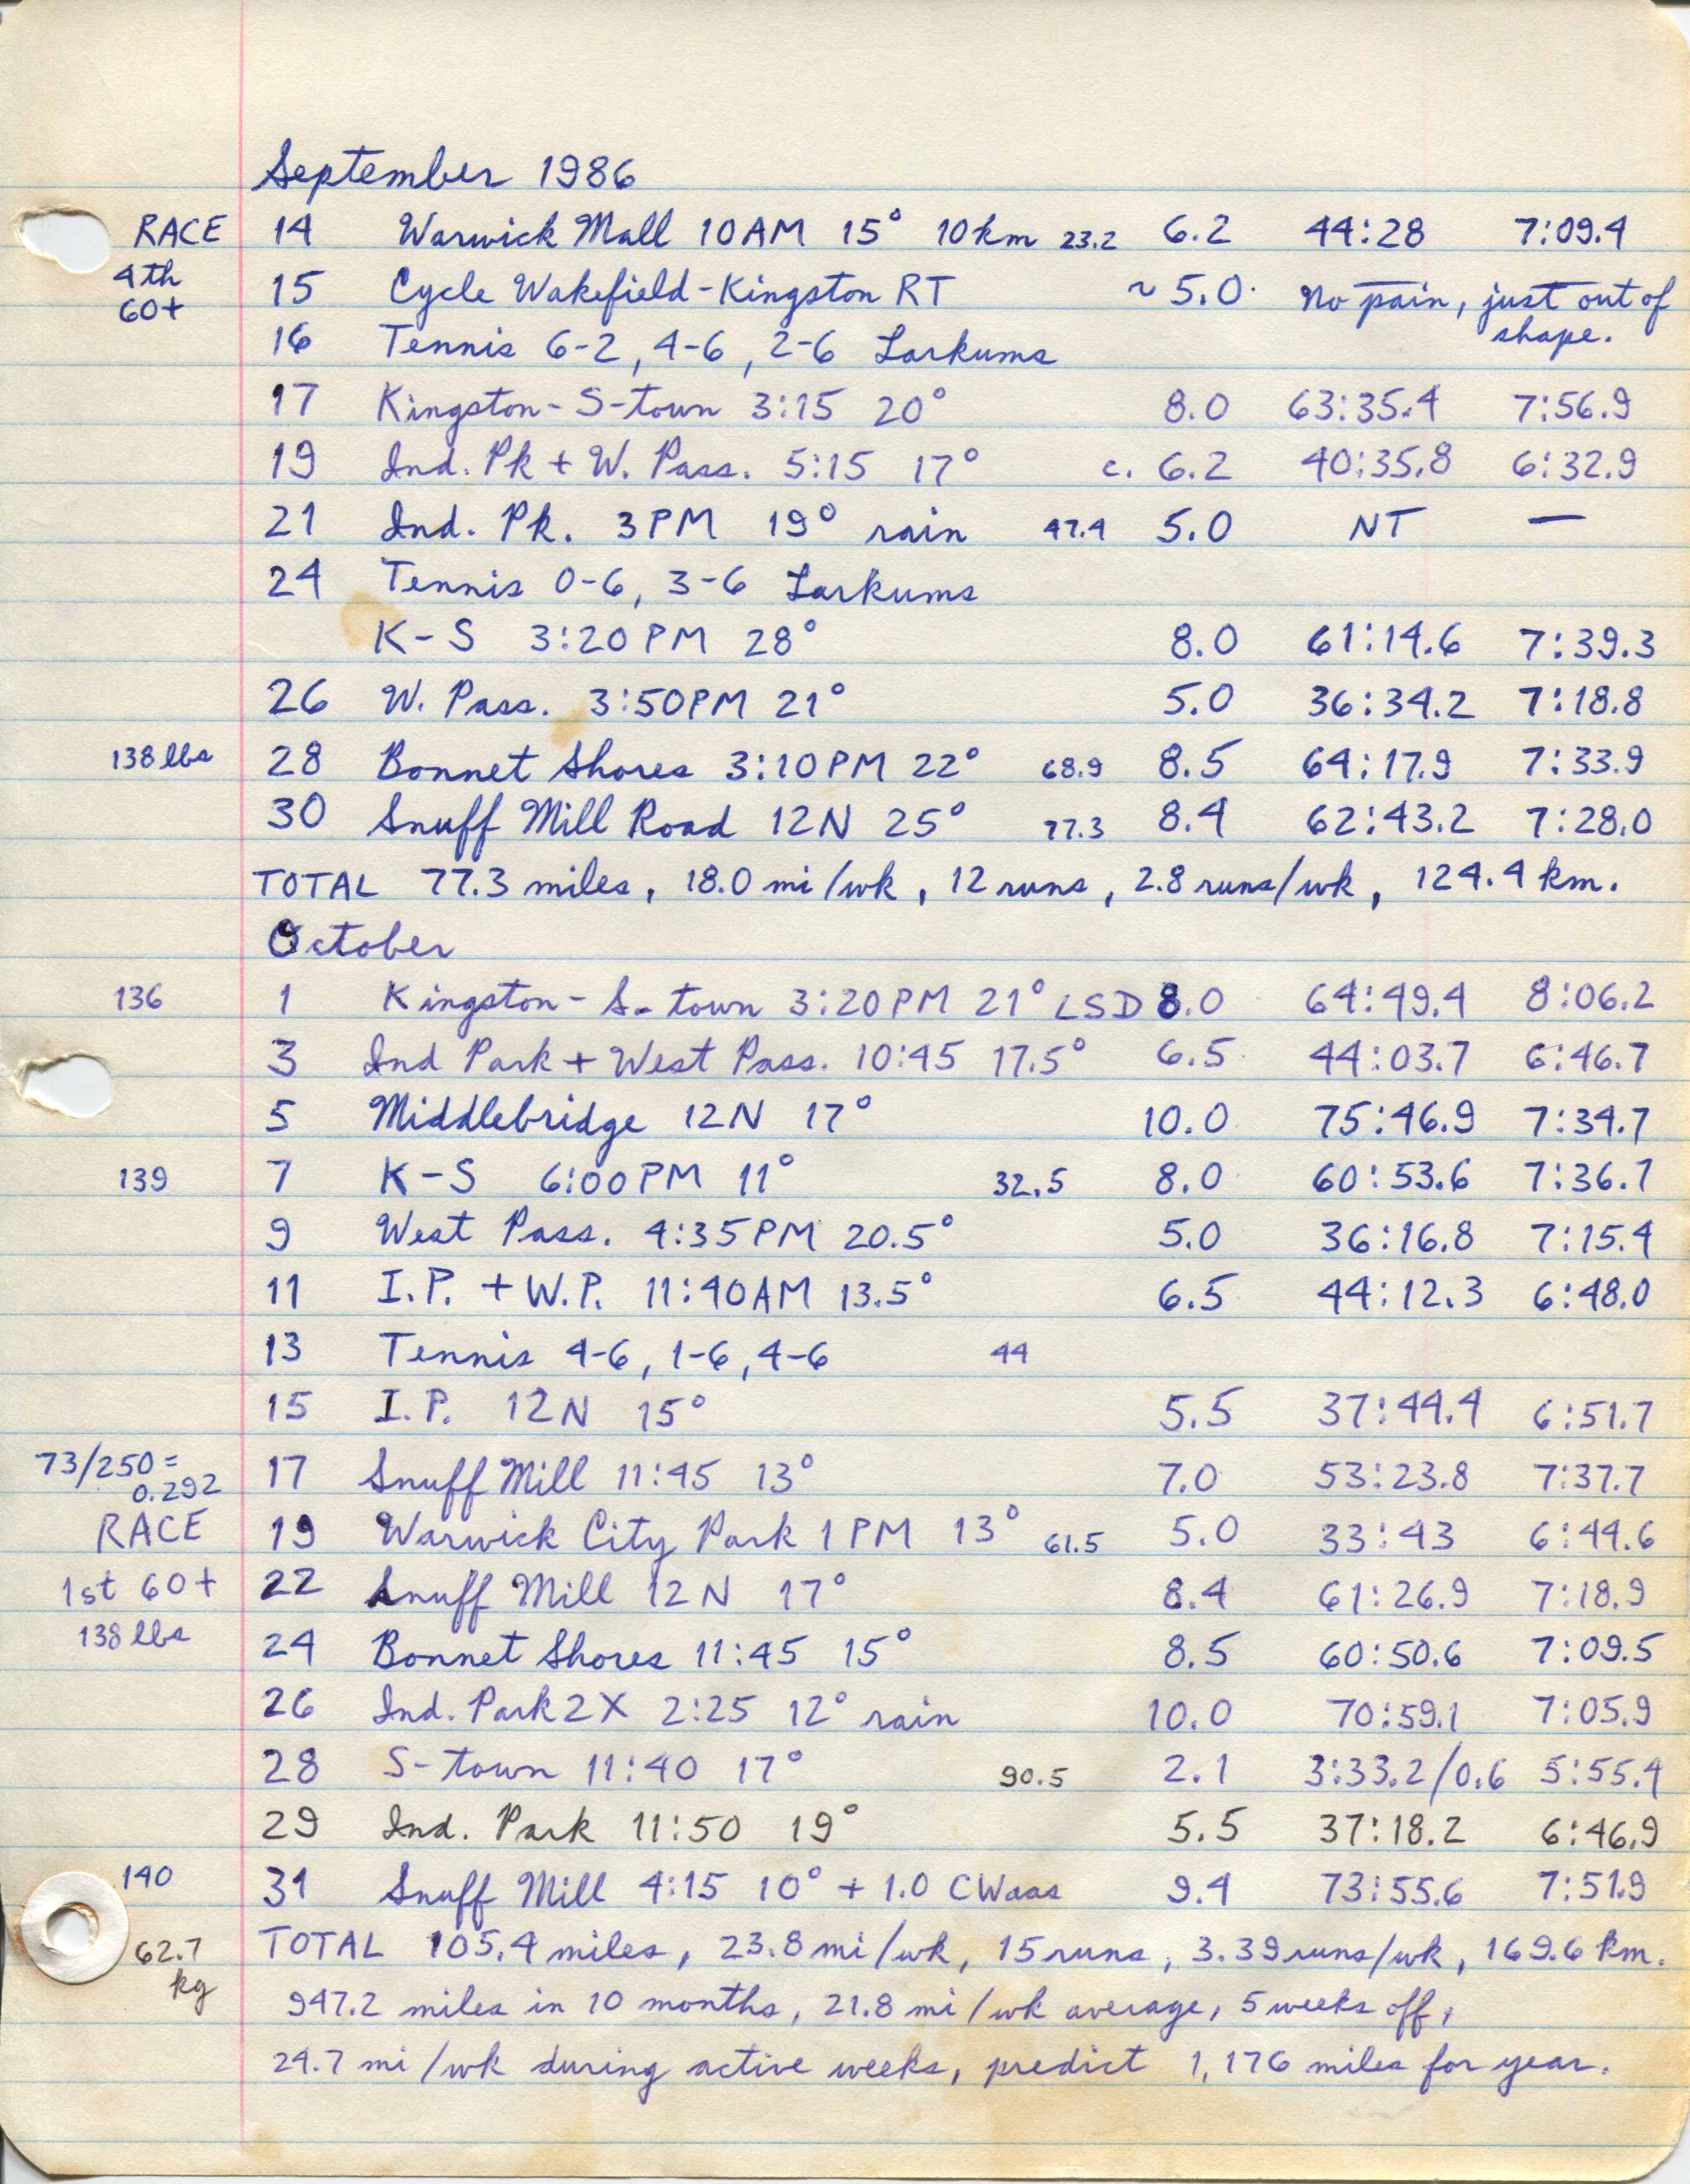 September 1986
RACE 14 Warwick Mall 10AM 15° 10km 23.2 6.2 44:28 7:09.4
4th
60+
15 Cycle Wakefield-Kingston RT ~5.0 No pain, just out of
shape.
16 Tennis 6-2, 4-6, 2-6 Larkums
17 Kingston-S-town 3:15 20° 8.0 63:35.4 7:56.9
19 Ind. Pk + W. Pass. 5:15 17° c. 6.2 40:35.8 6:32.9
21 Ind. Pk. 3PM 19° rain 47.4 5.0 NT —
24 Tennis 0-6, 3-6 Larkums
K-S 3:20PM 28° 8.0 61:14.6 7:39.3
26 W. Pass. 3:50PM 21° 5.0 36:34.2 7:18.8
138 lbs 28 Bonnet Shores 3:10PM 22° 68.9 8.5 64:17.9 7:33.9
30 Snuff Mill Road 12N 25° 77.3 8.4 62:43.2 7:28.0
TOTAL 77.3 miles, 18.0 mi/wk, 12 runs, 2.8 runs/wk, 124.4 km.
October
136 1 Kingston-S-town 3:20PM 21° LSD 8.0 64:49.4 8:06.2
3 Ind Park + West Pass. 10:45 17.5° 6.5 44:03.7 6:46.7
5 Middlebridge 12N 17° 10.0 75:46.9 7:34.7
139 7 K-S 6:00PM 11° 32.5 8.0 60:53.6 7:36.7
9 West Pass. 4:35PM 20.5° 5.0 36:16.8 7:15.4
11 I.P. + W.P. 11:40AM 13.5° 6.5 44:12.3 6:48.0
13 Tennis 4-6, 1-6, 4-6 44
15 I.P. 12N 15° 5.5 37:44.4 6:51.7
73/250 =
0.292
17 Snuff Mill 11:45 13° 7.0 53:23.8 7:37.7
RACE 19 Warwick City Park 1PM 13° 61.5 5.0 33:43 6:44.6
1st 60+ 22 Snuff Mill 12N 17° 8.4 61:26.9 7:18.9
138 lbs 24 Bonnet Shores 11:45 15° 8.5 60:50.6 7:09.5
26 Ind. Park 2X 2:25 12° rain 10.0 70:59.1 7:05.9
28 S-town 11:40 17° 90.5 2.1 3:33.2/0.6 5:55.4
29 Ind. Park 11:50 19° 5.5 37:18.2 6:46.9
140 31 Snuff Mill 4:15 10° + 1.0 CWaas 9.4 73:55.6 7:51.9
62.7
kg
TOTAL 105.4 miles, 23.8 mi/wk, 15 runs, 3.39 runs/wk, 169.6 km.
947.2 miles in 10 months, 21.8 mi/wk average, 5 weeks off,
24.7 mi/wk during active weeks, predict 1,176 miles for year.